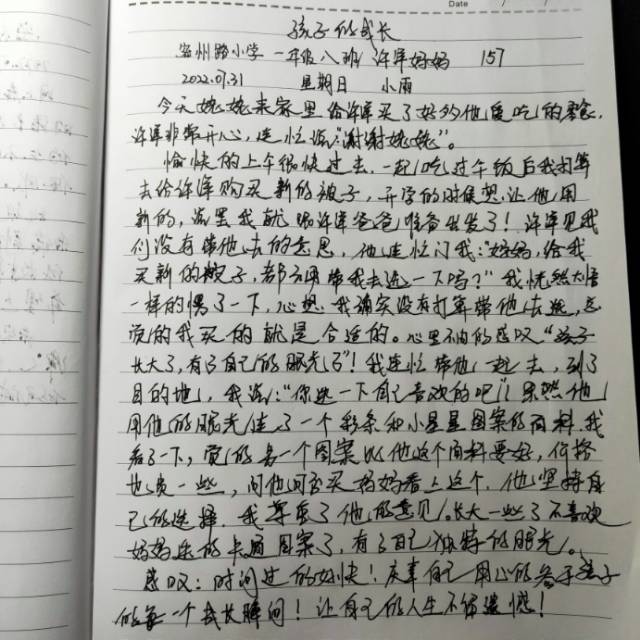 Date
孩子的成长
金州路小学 一年级八班 许淳妈妈 157
2022.07.31 星期日 小雨
今天姥姥来家里给许淳买了好多他爱吃的零食,
许淳非常开心,连忙说:"谢谢姥姥"。
愉快的上午很快过去,一起吃过午饭后我打算
去给许淳购买新的被子,开学的时候想让他用
新的,说罢我就跟许淳爸爸准备出发了!许淳见我
们没有带他去的意思,他连忙问我:"妈妈,给我
买新的被子,都不要带我去选一下吗?"我恍然大悟
一样的愣了一下,心想:我确实没有打算带他去选,总
觉的我买的就是合适的。心里不由的感叹"孩子
长大了,有了自己的眼光了"!我连忙带他一起去,到了
目的地,我说:"你选一下自己喜欢的吧"!果然他
用他的眼光选了一个彩条和小星星图案的面料,我
看了一下,觉的另一个图案比他这个面料要好,价格
也贵一些,问他可否买妈妈看上这个,他坚持自
己的选择,我尊重了他的意见。长大一些了不喜欢
妈妈选的卡通图案了,有了自己独特的眼光。
感叹:时间过的好快!庆幸自己用心的参于孩子
的每一个成长瞬间!让自己的人生不留遗憾!